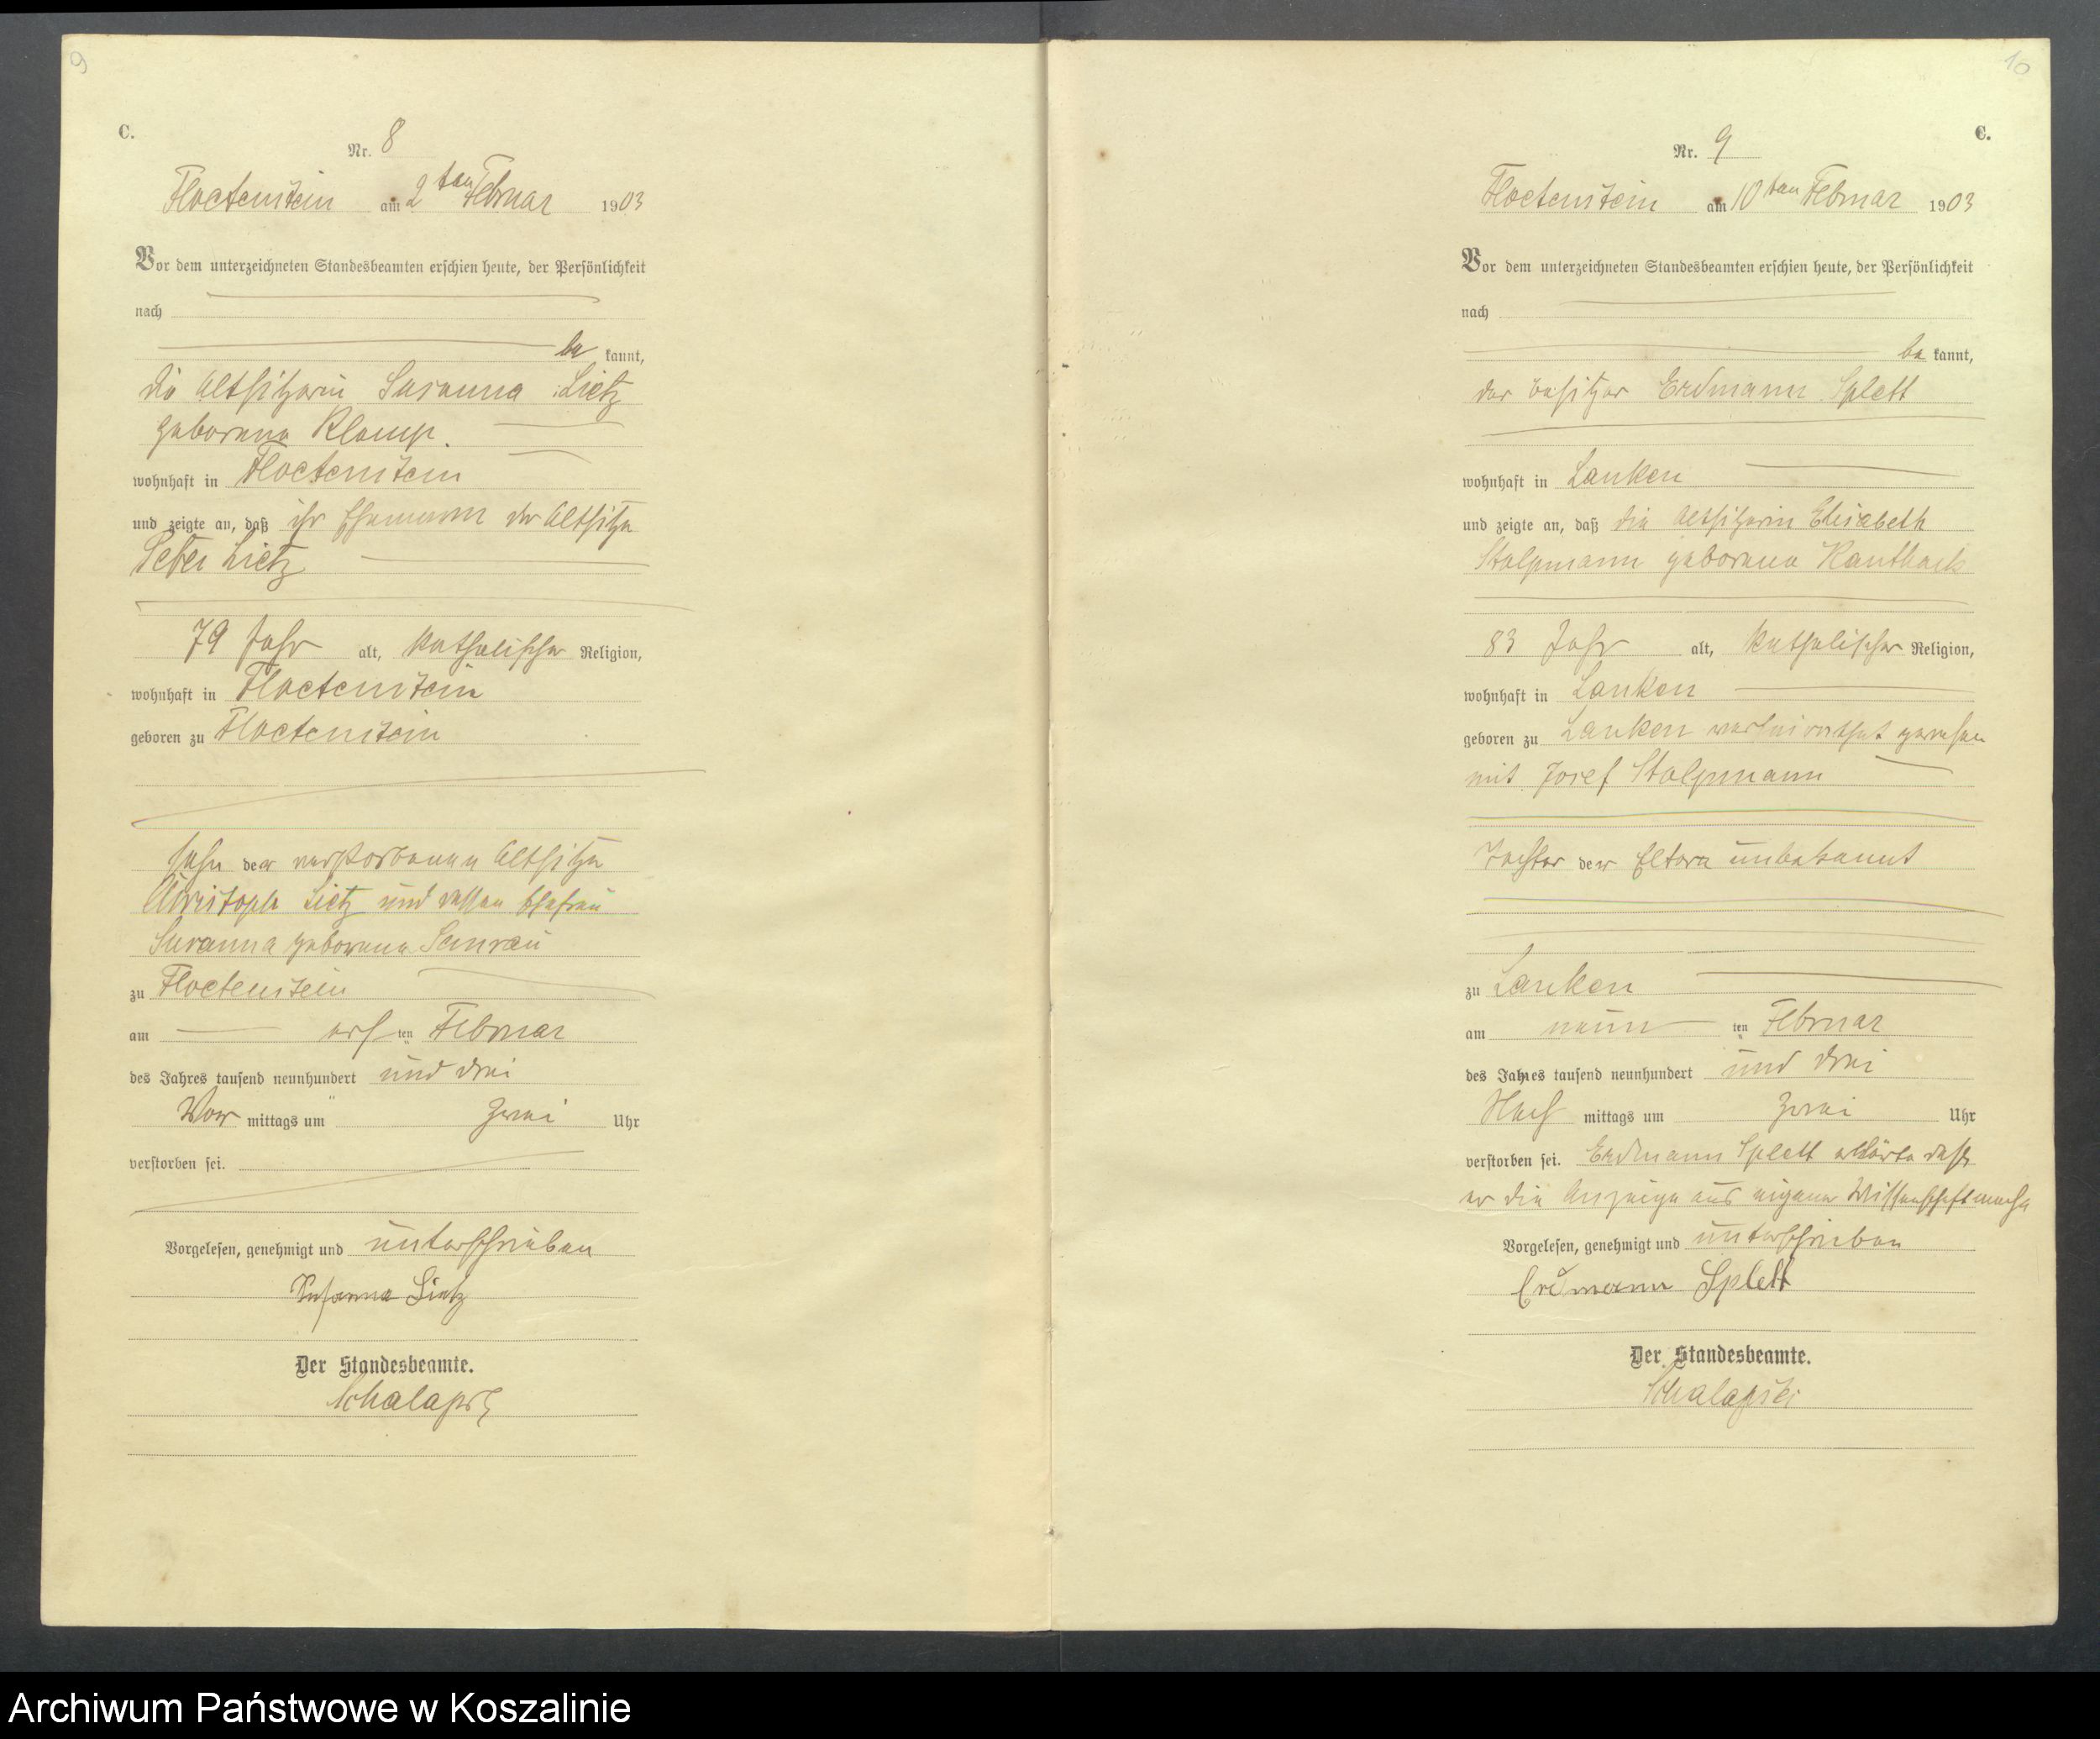 9
C.
Nr. 8
Floetenstein am 2ten Februar 1903
Vor dem unterzeichneten Standesbeamten erschien heute, der Persönlichkeit
nach
be kannt,
die Altsitzerin Susanna Lietz
geborene Klamp.
wohnhaft in Floetenstein
und zeigte an, daß ihr Ehemann der Altsitzer
Peter Lietz
79 Jahr alt, katholischer Religion,
wohnhaft in Floetenstein
geboren zu Floetenstein
Sohn der verstorbenen Altsitzer
Christoph Lietz und dessen Ehefrau
Susanna geborene Semrau
zu Floetenstein
am ersten Februar
des Jahres tausend neunhundert und drei
Vor mittags um zwei Uhr
verstorben sei.
Vorgelesen, genehmigt und unterschrieben
Susanna Lietz
Der Standesbeamte.
10
C.
Nr. 9
Floetenstein am 10ten Februar 1903
Vor dem unterzeichneten Standesbeamten erschien heute, der Persönlichkeit
nach
be kannt,
der Besitzer Erdmann Splett
wohnhaft in Lanken
und zeigte an, daß die Altsitzerin Elisabeth
Stolpmann geborene Kanthack
83 Jahr alt, katholischer Religion,
wohnhaft in Lanken
geboren zu Lanken verheirathet gewesen
mit Josef Stolpmann
Tochter der Eltern unbekannt
zu Lanken
am neun ten Februar
des Jahres tausend neunhundert und drei
Nach mittags um zwei Uhr
verstorben sei. Erdmann Splett erklärte daß
er die Anzeige aus eigener Wissenschaft mache
Vorgelesen, genehmigt und unterschrieben
Erdmann Splett
Der Standesbeamte.
Schalapski
Archiwum Państwowe w Koszalinie